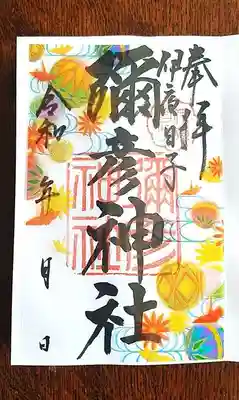 奉拝
伊夜日子
彌彦神社
彌彦神社
令和 年 月 日